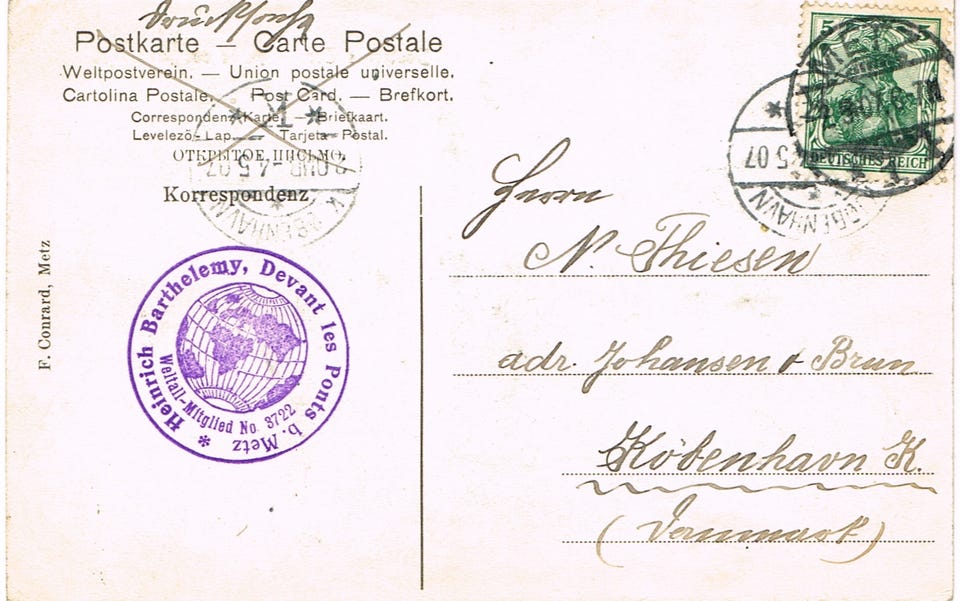 Drucksache
Postkarte — Carte Postale
Weltpostverein. — Union postale universelle.
Cartolina Postale. — Post Card. — Brefkort.
Correspondenz-Karte. — Briefkaart.
Levelező-Lap. — Tarjeta Postal.
ОТКРЫТОЕ ПИСЬМО.
Korrespondenz
KØBENHAVN K
1
2 OMB -4.5.07
F. Conrard, Metz
Heinrich Barthelemy, Devant les Ponts b. Metz *
Weltall-Mitglied No 3722
5
METZ
DEUTSCHES REICH
5.07
KØBENHAVN
Herrn
N. Thiesen
adr. Johansen & Brun
Köbenhavn K.
(Dänemark)